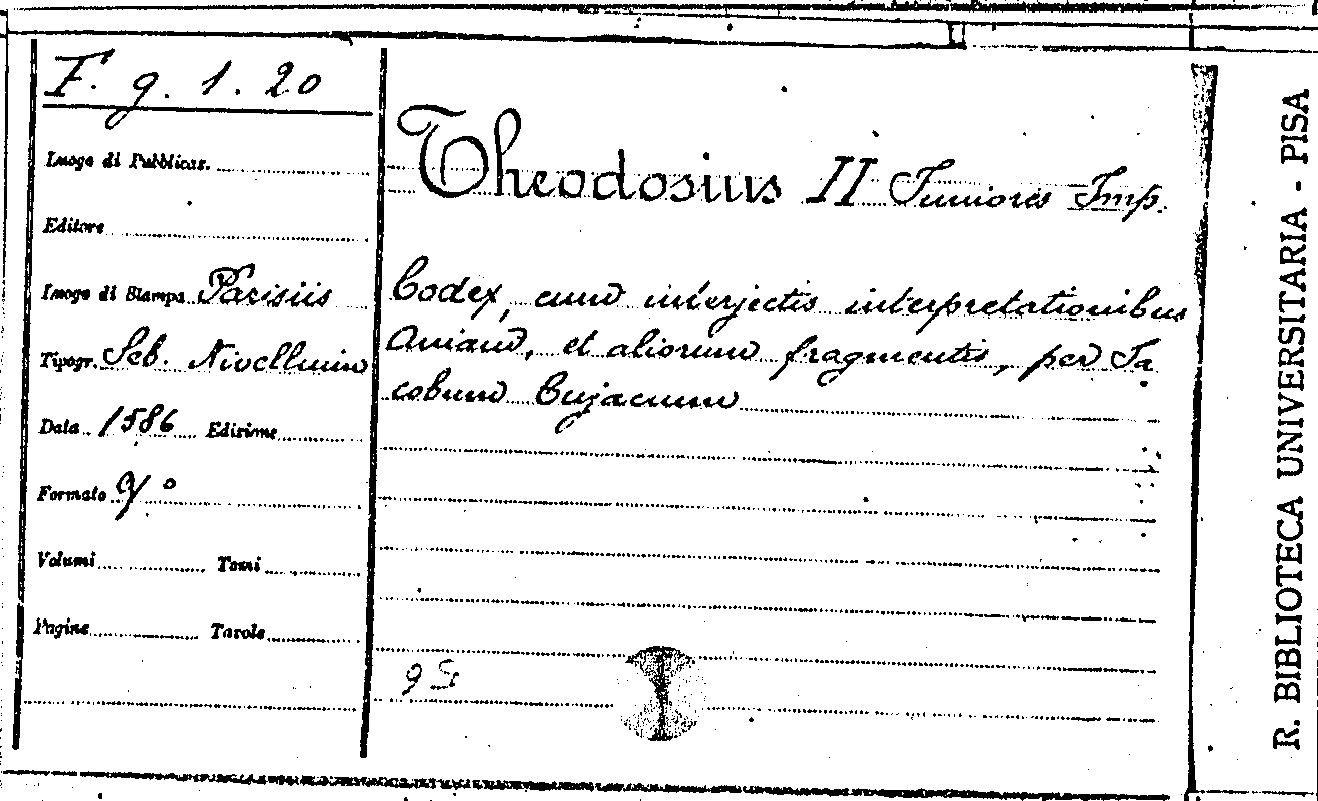 F. g. 1. 20
Luogo di Pubblicaz.
Editore
Luogo di Stampa Parisiis
Tipogr. Seb. Nivellium
Data 1586 Edizione
Formato 4°
Volumi Tomi
Pagine Tavole
Theodosius II Juniores Imp.
Codex, cum interjectis interpretationibus
Aniani, et aliorum fragmentis, per Ja
cobum Cujacium
95
R. BIBLIOTECA UNIVERSITARIA - PISA